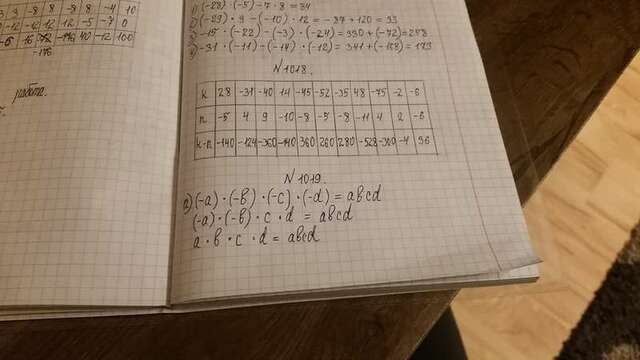 3 3 -8 8 8 -8 8 -4 10
-12 -12 12 12 -5 -7 0
-6 16 -176 40 -12 100
-176
работа.
1) (-28) · (-5) - 7 · 8 = 84
2) · 9 - (-10) · 12 = - 87 + 120 = 33
3) -15 · (-22) - (-3) · (-24) = 330 + (-72) = 258
4) -31 · (-11) - (-14) · (-12) = 341 + (-168) = 173
N 1018.
k 28 -31 -40 14 -45 -52 -35 48 -75 -2 -6
n -5 4 9 -10 -8 -5 -8 -11 4 2 -6
k·n -140 -124 -360 -140 360 260 280 -528 -300 -4 36
N 1019.
a) (-a) · (-b) · (-c) · (-d) = abcd
(-a) · (-b) · c · d = abcd
a · b · c · d = abcd